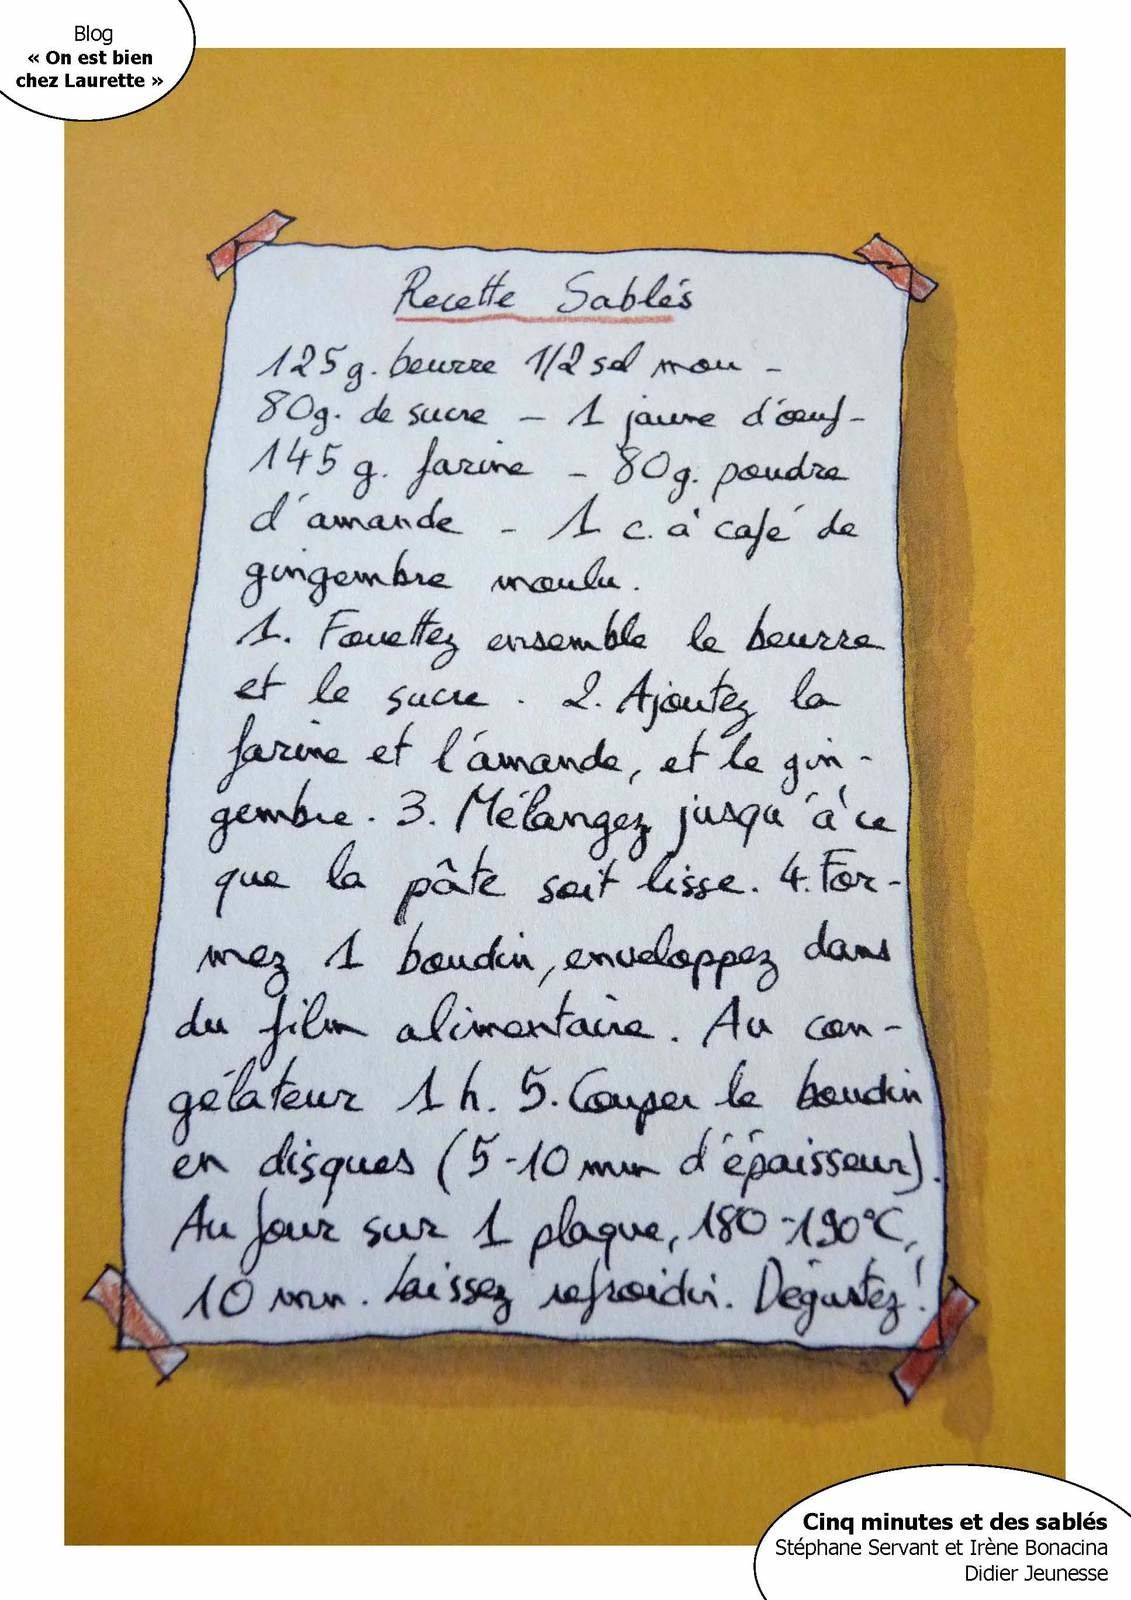 Blog
« On est bien
chez Laurette »
Recette Sablés
125g. beurre 1/2 sel mou -
80g. de sucre - 1 jaune d'œuf -
145 g. farine - 80g. poudre
d'amande - 1 c. à café de
gingembre moulu.
1. Fouettez ensemble le beurre
et le sucre. 2. Ajoutez la
farine et l'amande, et le gin-
gembre. 3. Mélangez jusqu'à ce
que la pâte soit lisse. 4. For-
mez 1 boudin, enveloppez dans
du film alimentaire. Au con-
gélateur 1 h. 5. Couper le boudin
en disques (5-10 mm d'épaisseur).
Au four sur 1 plaque, 180-190°C,
10 mn. Laissez refroidir. Dégustez!
Cinq minutes et des sablés
Stéphane Servant et Irène Bonacina
Didier Jeunesse